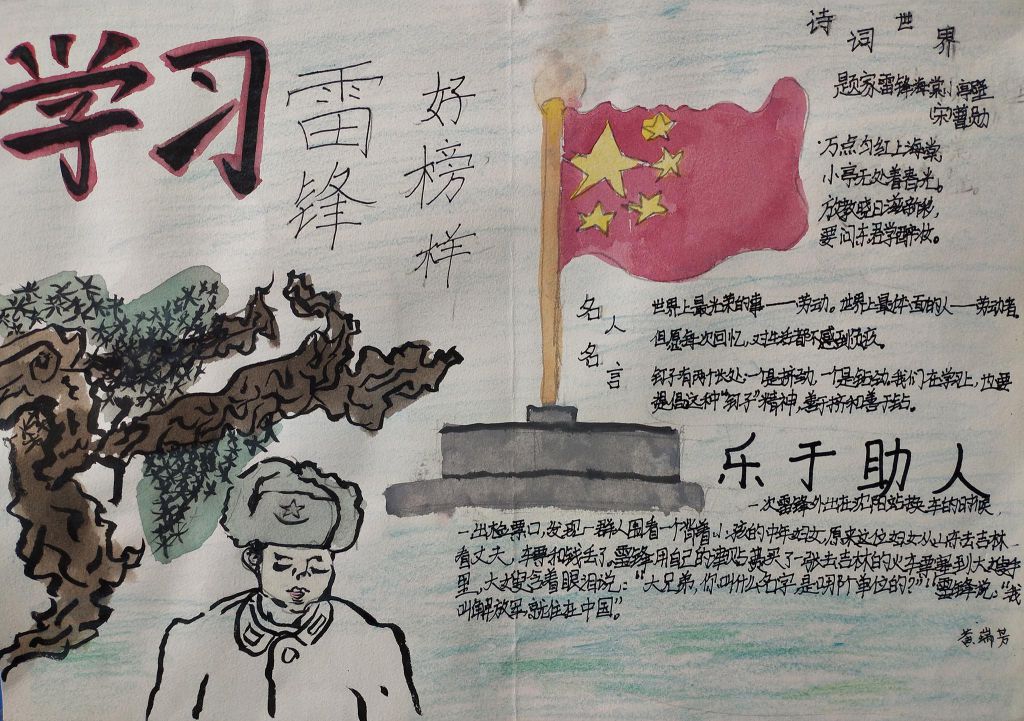 学习
雷锋
好榜样
诗词世界
题家雷锋海棠小亭壁
宋曹勋
万点匀红上海棠
小亭无处着春光。
放教晓日滋新彩，
要问东君学醉妆。
名人名言
世界上最光荣的事——劳动。世界上最体面的人——劳动者。
但愿每次回忆，对生活都不感到负疚。
钉子有两个长处:一个是挤劲,一个是钻劲.我们在学习上,也要
提倡这种“钉子”精神，善于挤和善于钻。
乐于助人
一次雷锋外出在沈阳站换车的时候，
一出检票口，发现一群人围着一个背着小孩的中年妇女，原来这位妇女从山东去吉林
看丈夫，车票和钱丢了。雷锋用自己的津贴费买了一张去吉林的火车票塞到大嫂手
里，大嫂含着眼泪说：“大兄弟，你叫什么名字，是哪个单位的？”“雷锋说：“我
叫解放军，就住在中国”
黄瑞芳